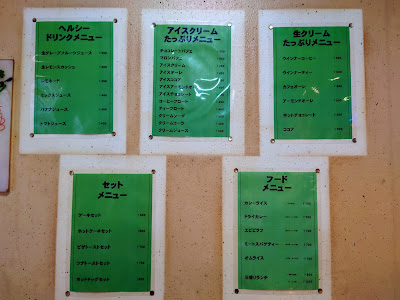 ヘルシー
ドリンクメニュー
生グレープフルーツジュース
生レモンスカッシュ
レモネード
ミックスジュース
バナナジュース
トマトジュース
アイスクリーム
たっぷりメニュー
チョコレートパフェ
プリンパフェ
アイスクリーム
アイスオーレ
アイスココア
アイスアーモンドオーレ
アイスチョコレート
コーヒーフロート
ティーフロート
クリームソーダ
クリームコーラ
クリームジュース
生クリーム
たっぷりメニュー
ウインナーコーヒー
ウインナーティー
カフェオーレ
アーモンドオーレ
ホットチョコレート
ココア
セット
メニュー
ケーキセット
ホットケーキセット
ピザトーストセット
ツナトーストセット
ホットドッグセット
フード
メニュー
カレーライス
ドライカレー
エビピラフ
ミートスパゲティー
オムライス
日替りランチ